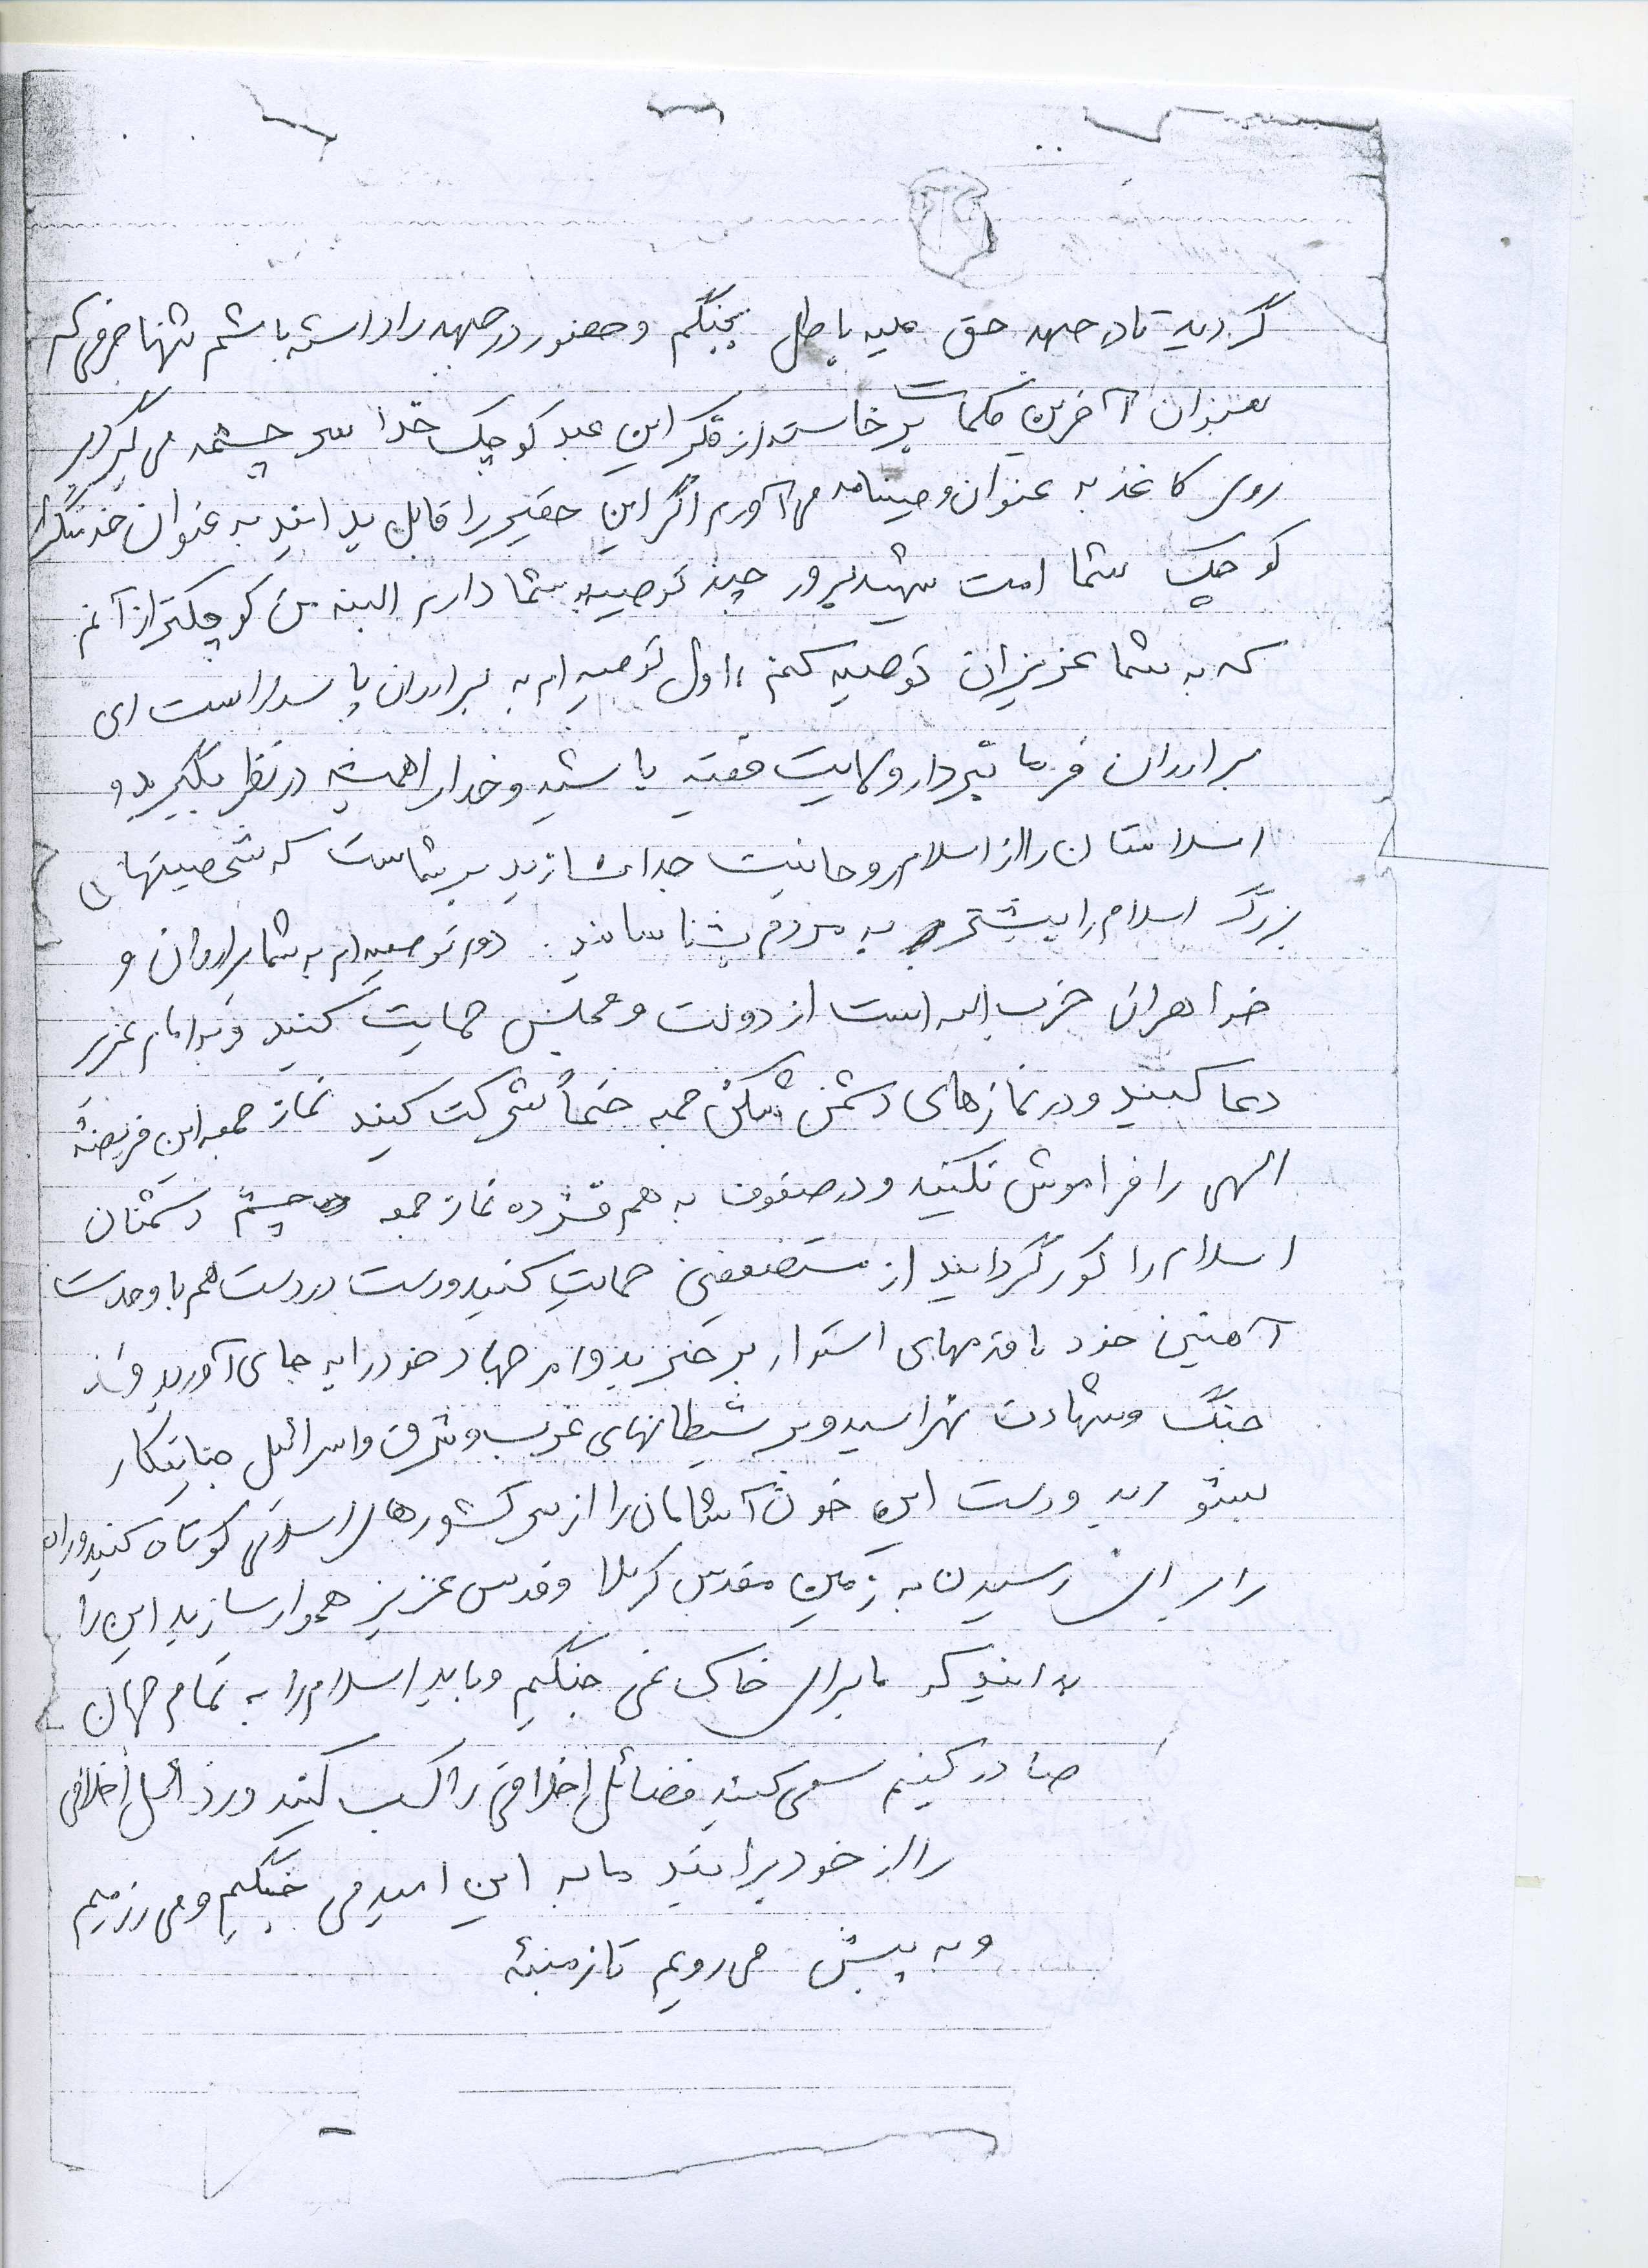 گردید تا در جبهه حق علیه باطل بجنگم و حضور در جبهه را داشته باشم تنها حرفی که
بعنوان آخرین کلمات برخاسته از فکر این عبد کوچک خدا سرچشمه می گیرد بر
روی کاغذ به عنوان وصیتنامه می آورم اگر این حقیر را قابل بدانید به عنوان خدمتگزار
کوچک شما امت شهیدپرور چند توصیه به شما دارم البته من کوچکتر از آنم
که به شما عزیزان توصیه کنم ، اول توصیه ام به برادران پاسدار است ای
برادران فرمانبردار ولایت فقیه باشید و خدا را همیشه در نظر بگیرید و
اسلامتان را از اسلام روحانیت جدا نسازید بر شماست که شخصیتهای
بزرگ اسلام را بیشتر به مردم بشناسانید. دوم توصیه ام به شما برادران و
خواهران حزب الله است از دولت و مجلس حمایت کنید و به امام عزیز
دعا کنید و در نمازهای دشمن شکن جمعه حتماً شرکت کنید نماز جمعه این فریضهٔ
الهی را فراموش نکنید و در صفوف به هم فشرده نماز جمعه چشم دشمنان
اسلام را کور گردانید از مستضعفین حمایت کنید و دست در دست هم با وحدت
آهنین خود با قدمهای استوار برخیزید و امر جهاد خود را به جای آورید و از
جنگ و شهادت نهراسید و بر شیطانهای غرب و شرق و اسرائیل جنایتکار
بشورید و دست این خون آشامان را از سر کشورهای اسلامی کوتاه کنید و راه
را برای رسیدن به زمین مقدس کربلا و قدس عزیز هموار سازید این را
بدانید که ما برای خاک نمی جنگیم و باید اسلام را به تمام جهان
صادر کنیم سعی کنید فضائل اخلاقی را کسب کنید و رذائل اخلاقی
را از خود برانید ما به این امید می جنگیم و می رزمیم
و به پیش می رویم تا زمینهٔ